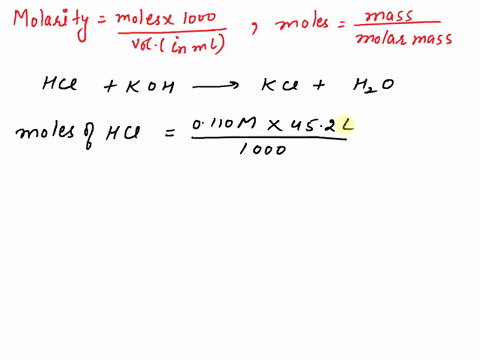 Molarity = moles x 1000 / vol. (in mL) , moles = mass / molar mass
HCl + KOH ⟶ KCl + H₂O
moles of HCl = 0.110M X 45.2L / 1000